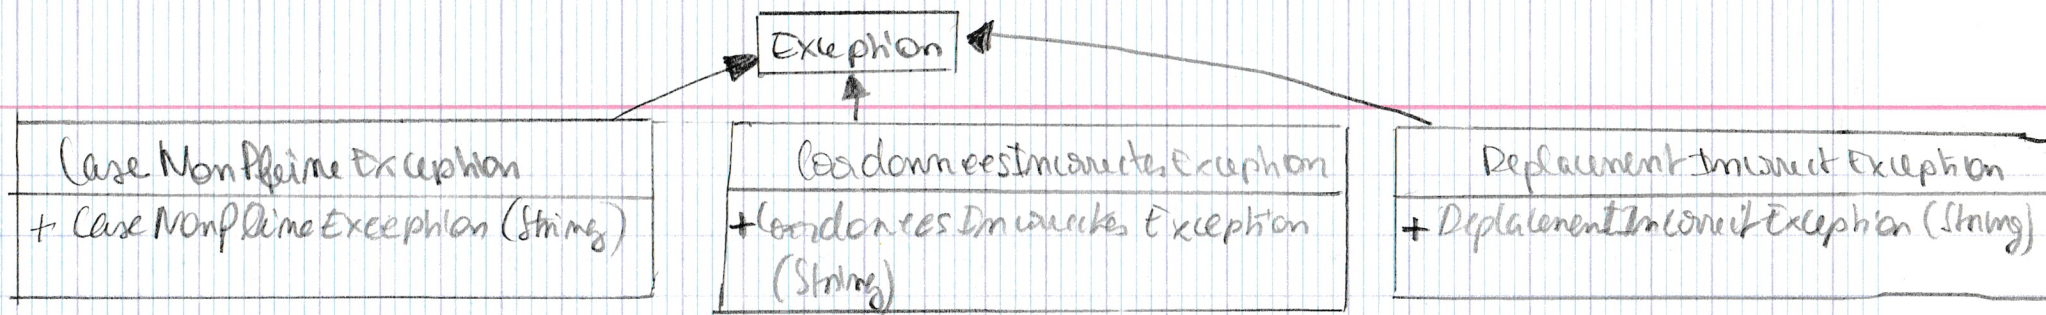 Exception
CaseNonPleineException
+ CaseNonpleineException (String)
CoordonneesIncorrectesException
+ CoordonneesIncorrectes Exception
(String)
DeplacementIncorrectException
+ DeplacementIncorrectException (String)